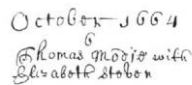 October 1664
6
Thomas Modje with
Elizabeth Stobon